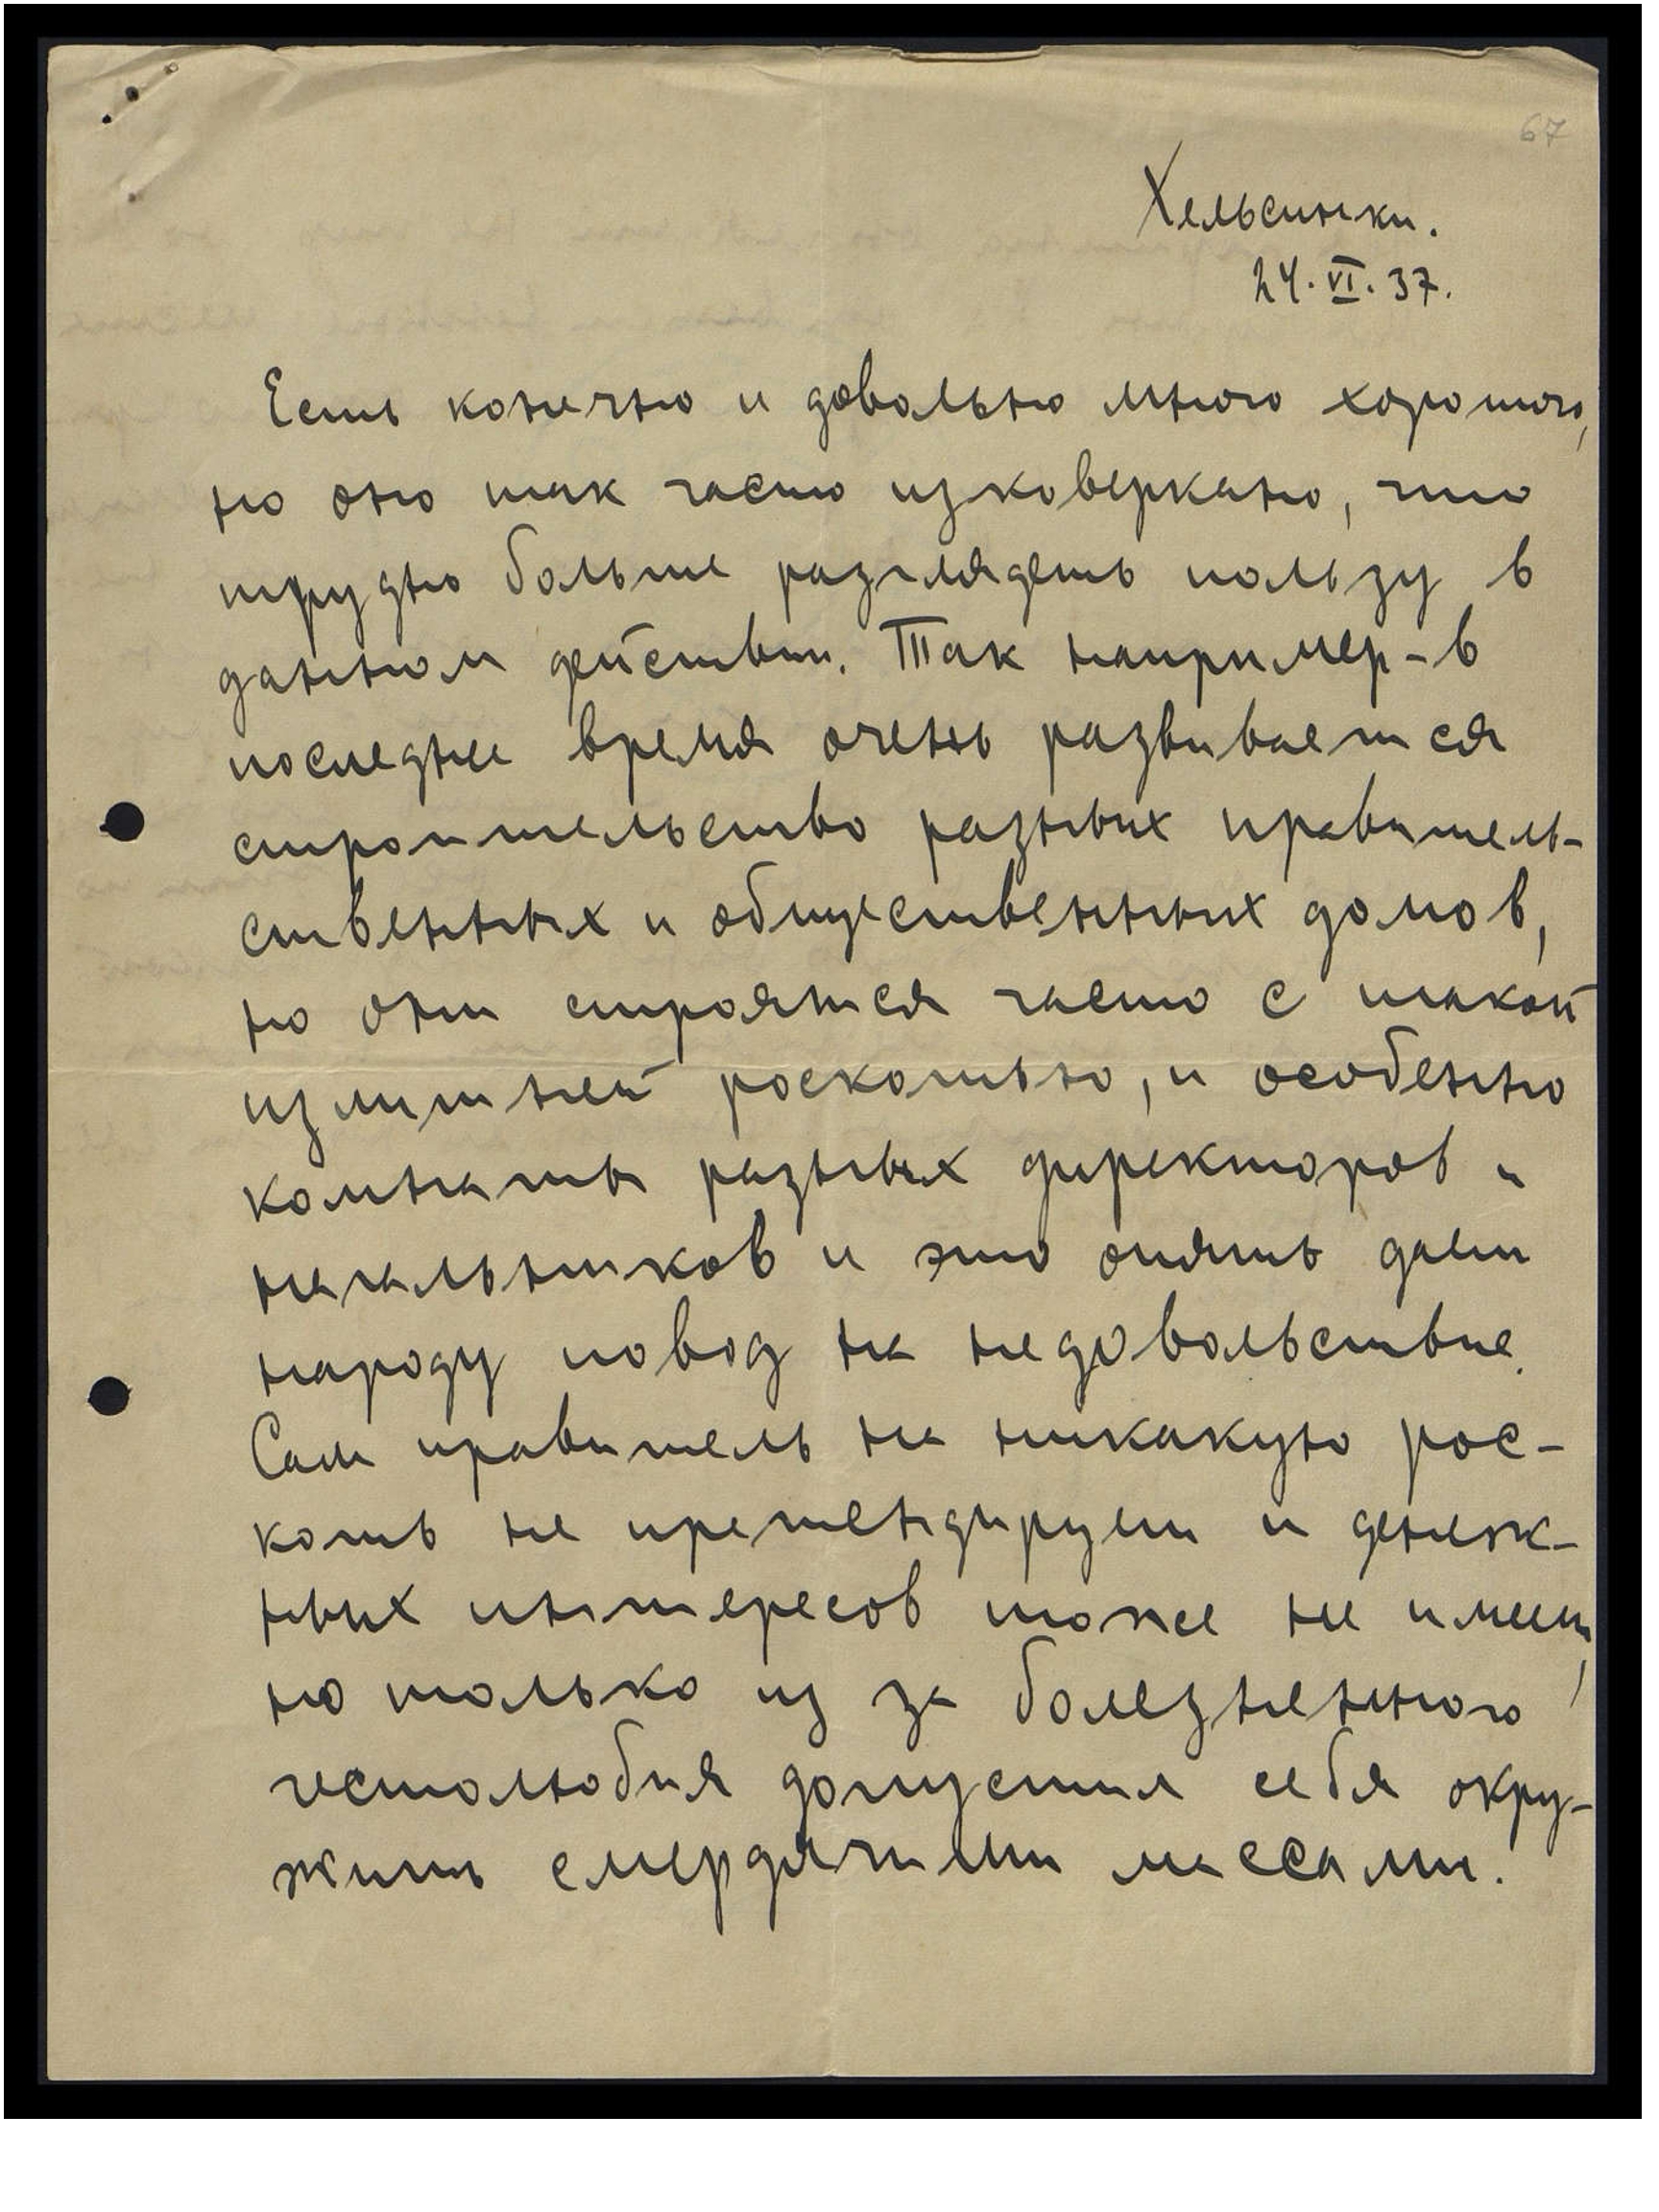 67
Хельсинки.
24.VI.37.
Есть конечно и довольно много хорошого,
но оно так часто изковеркано, что
трудно больше разглядеть пользу в
данном действии. Так например - в
последнее время очень развивается
строительство разных правитель-
ственных и общественных домов,
но они строятся часто с такой
излишней роскошью, и особенно
комнаты разных директоров и
начальников и это опять дает
народу повод на недовольствие.
Сам правитель на никакую рос-
кошь не претендирует и денеж-
ных интересов тоже не имеет,
но только из за болезненного
честолюбия допустил себя окру-
жить смердячими массами.